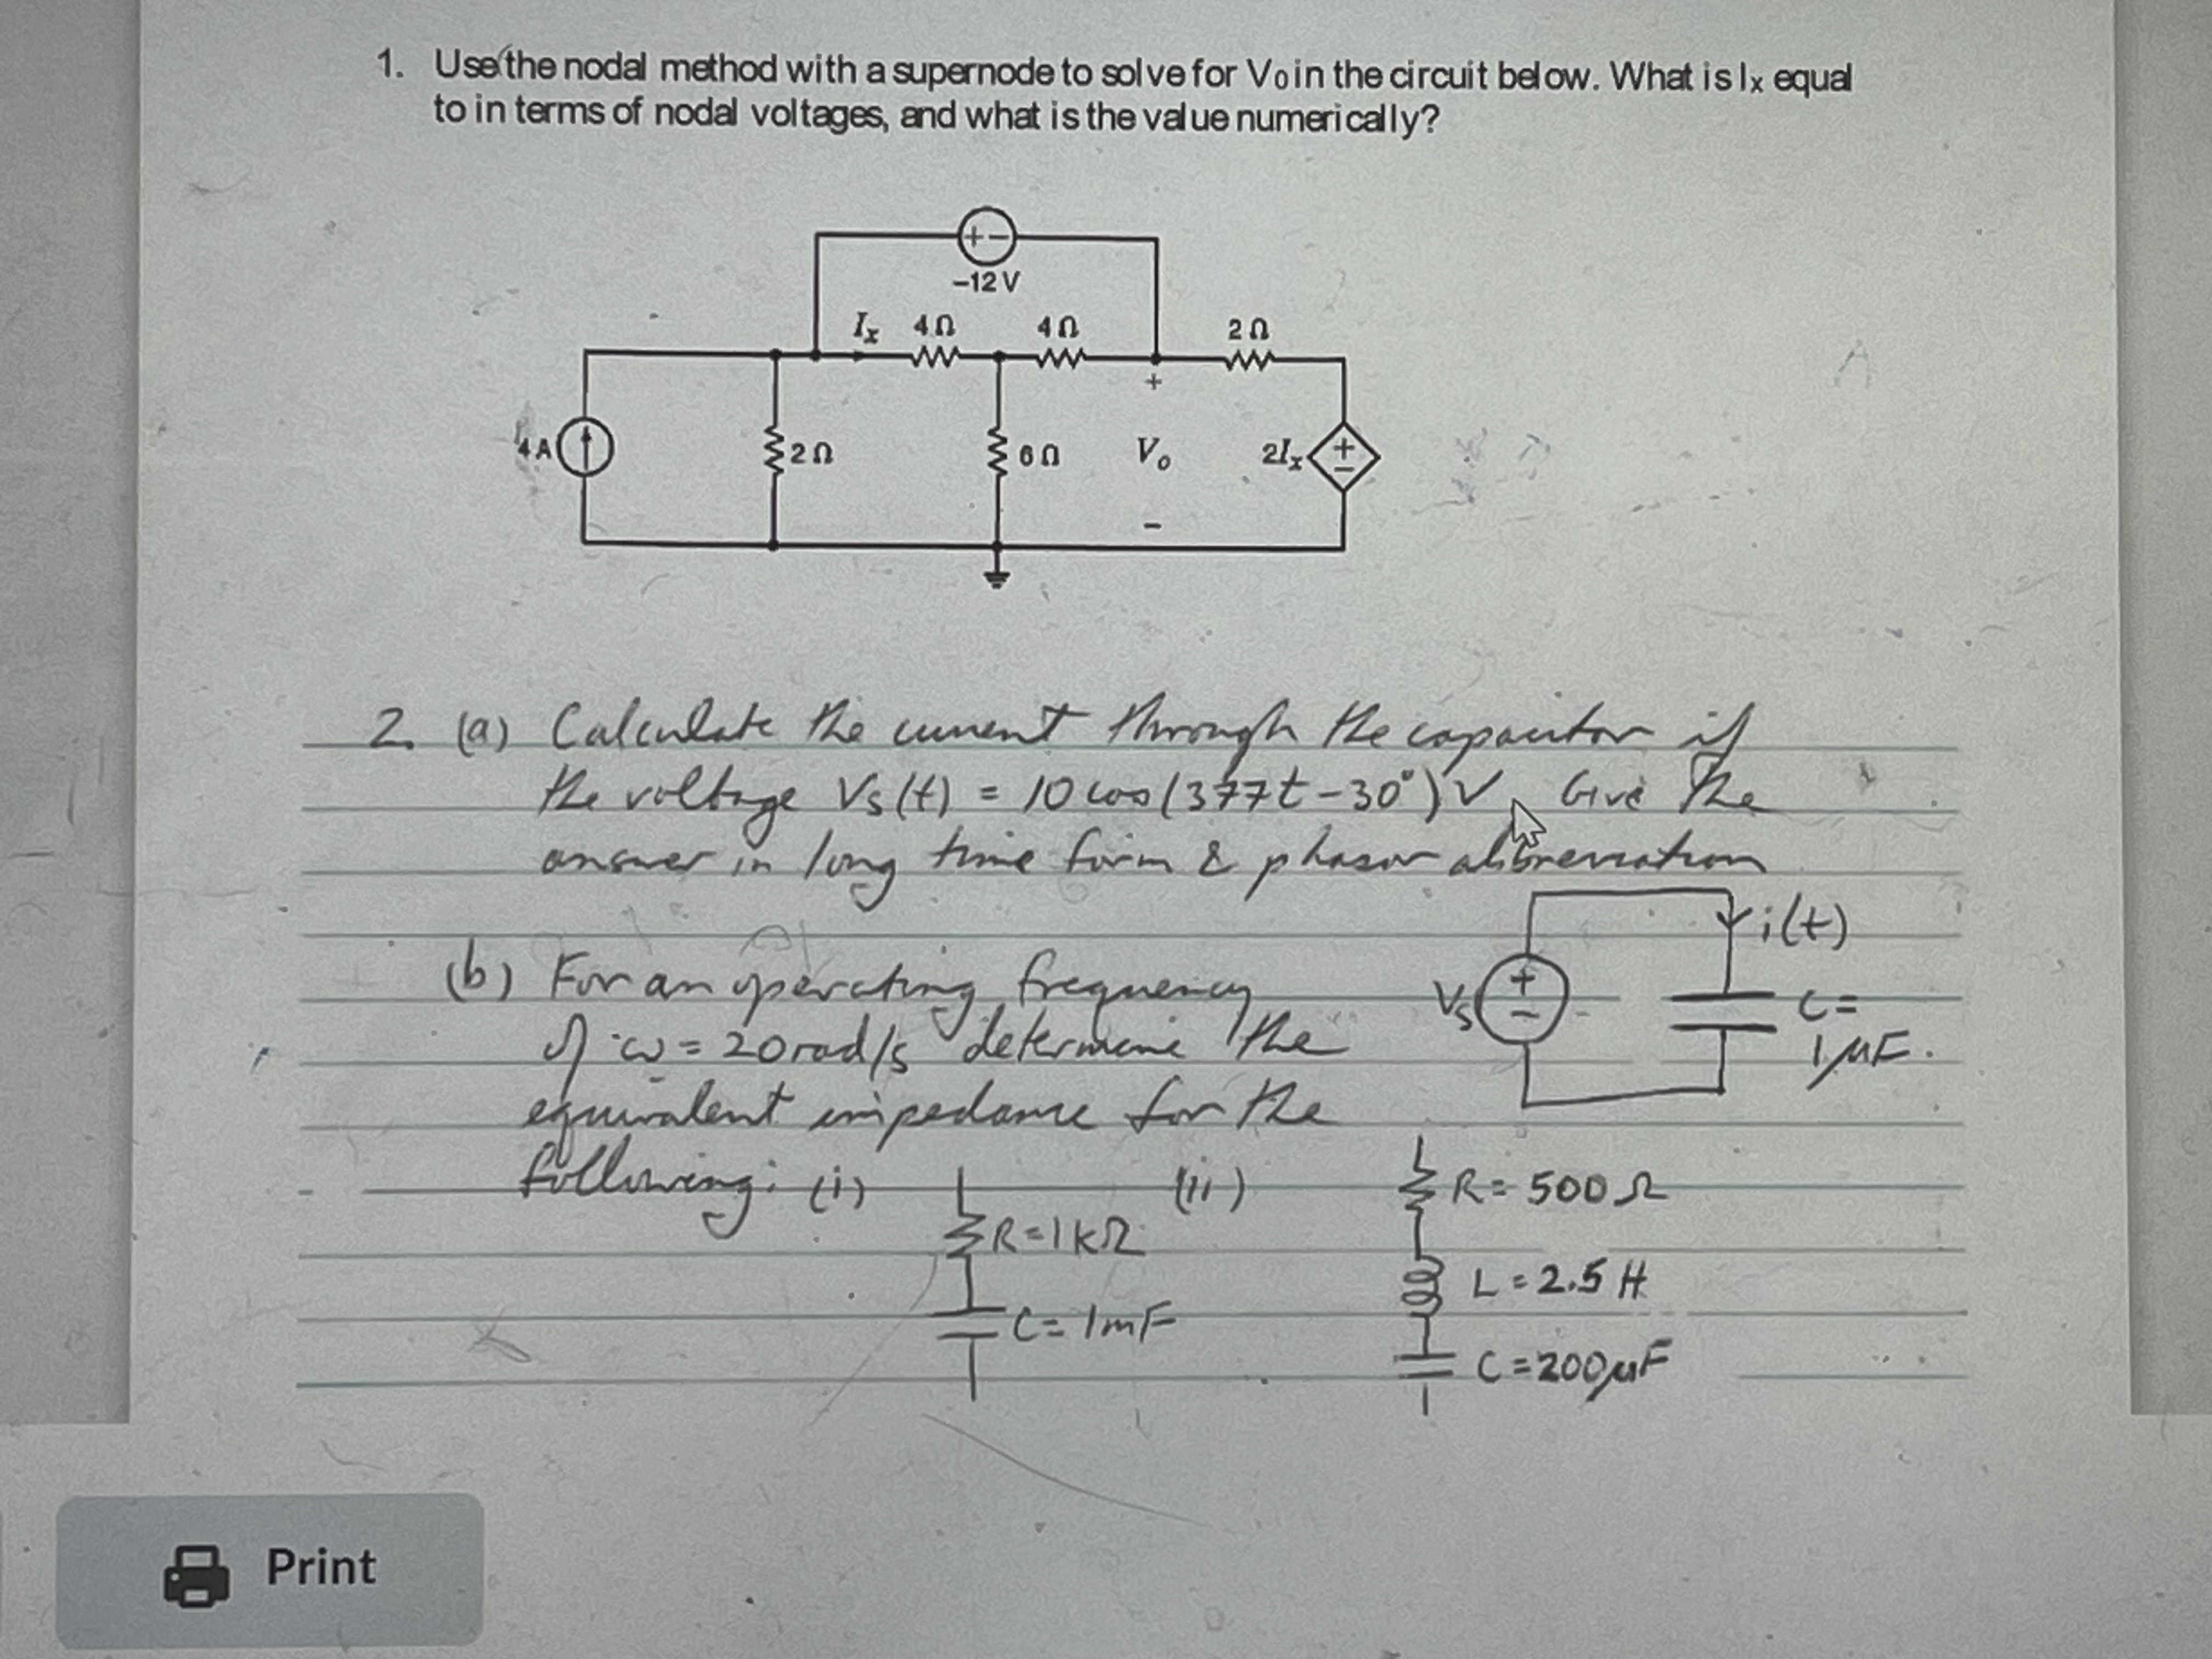 1. Use the nodal method with a supernode to solve for Vo in the circuit below. What is Ix equal
to in terms of nodal voltages, and what is the value numerically?
+ −
−12 V
Ix 4Ω 4Ω 2Ω
+
4 A 2Ω 6Ω Vo 2Ix + −
−
2. (a) Calculate the current through the capacitor if
the voltage Vs(t) = 10 cos(377t − 30°) V. Give the
answer in long time form & phasor abbreviation
i(t)
(b) For an operating frequency
Vs + − C =
of ω = 20 rad/s determine the
1 μF.
equivalent impedance for the
following: (i) (ii) R = 500 Ω
R = 1 kΩ
L = 2.5 H
C = 1mF
C = 200 μF
Print